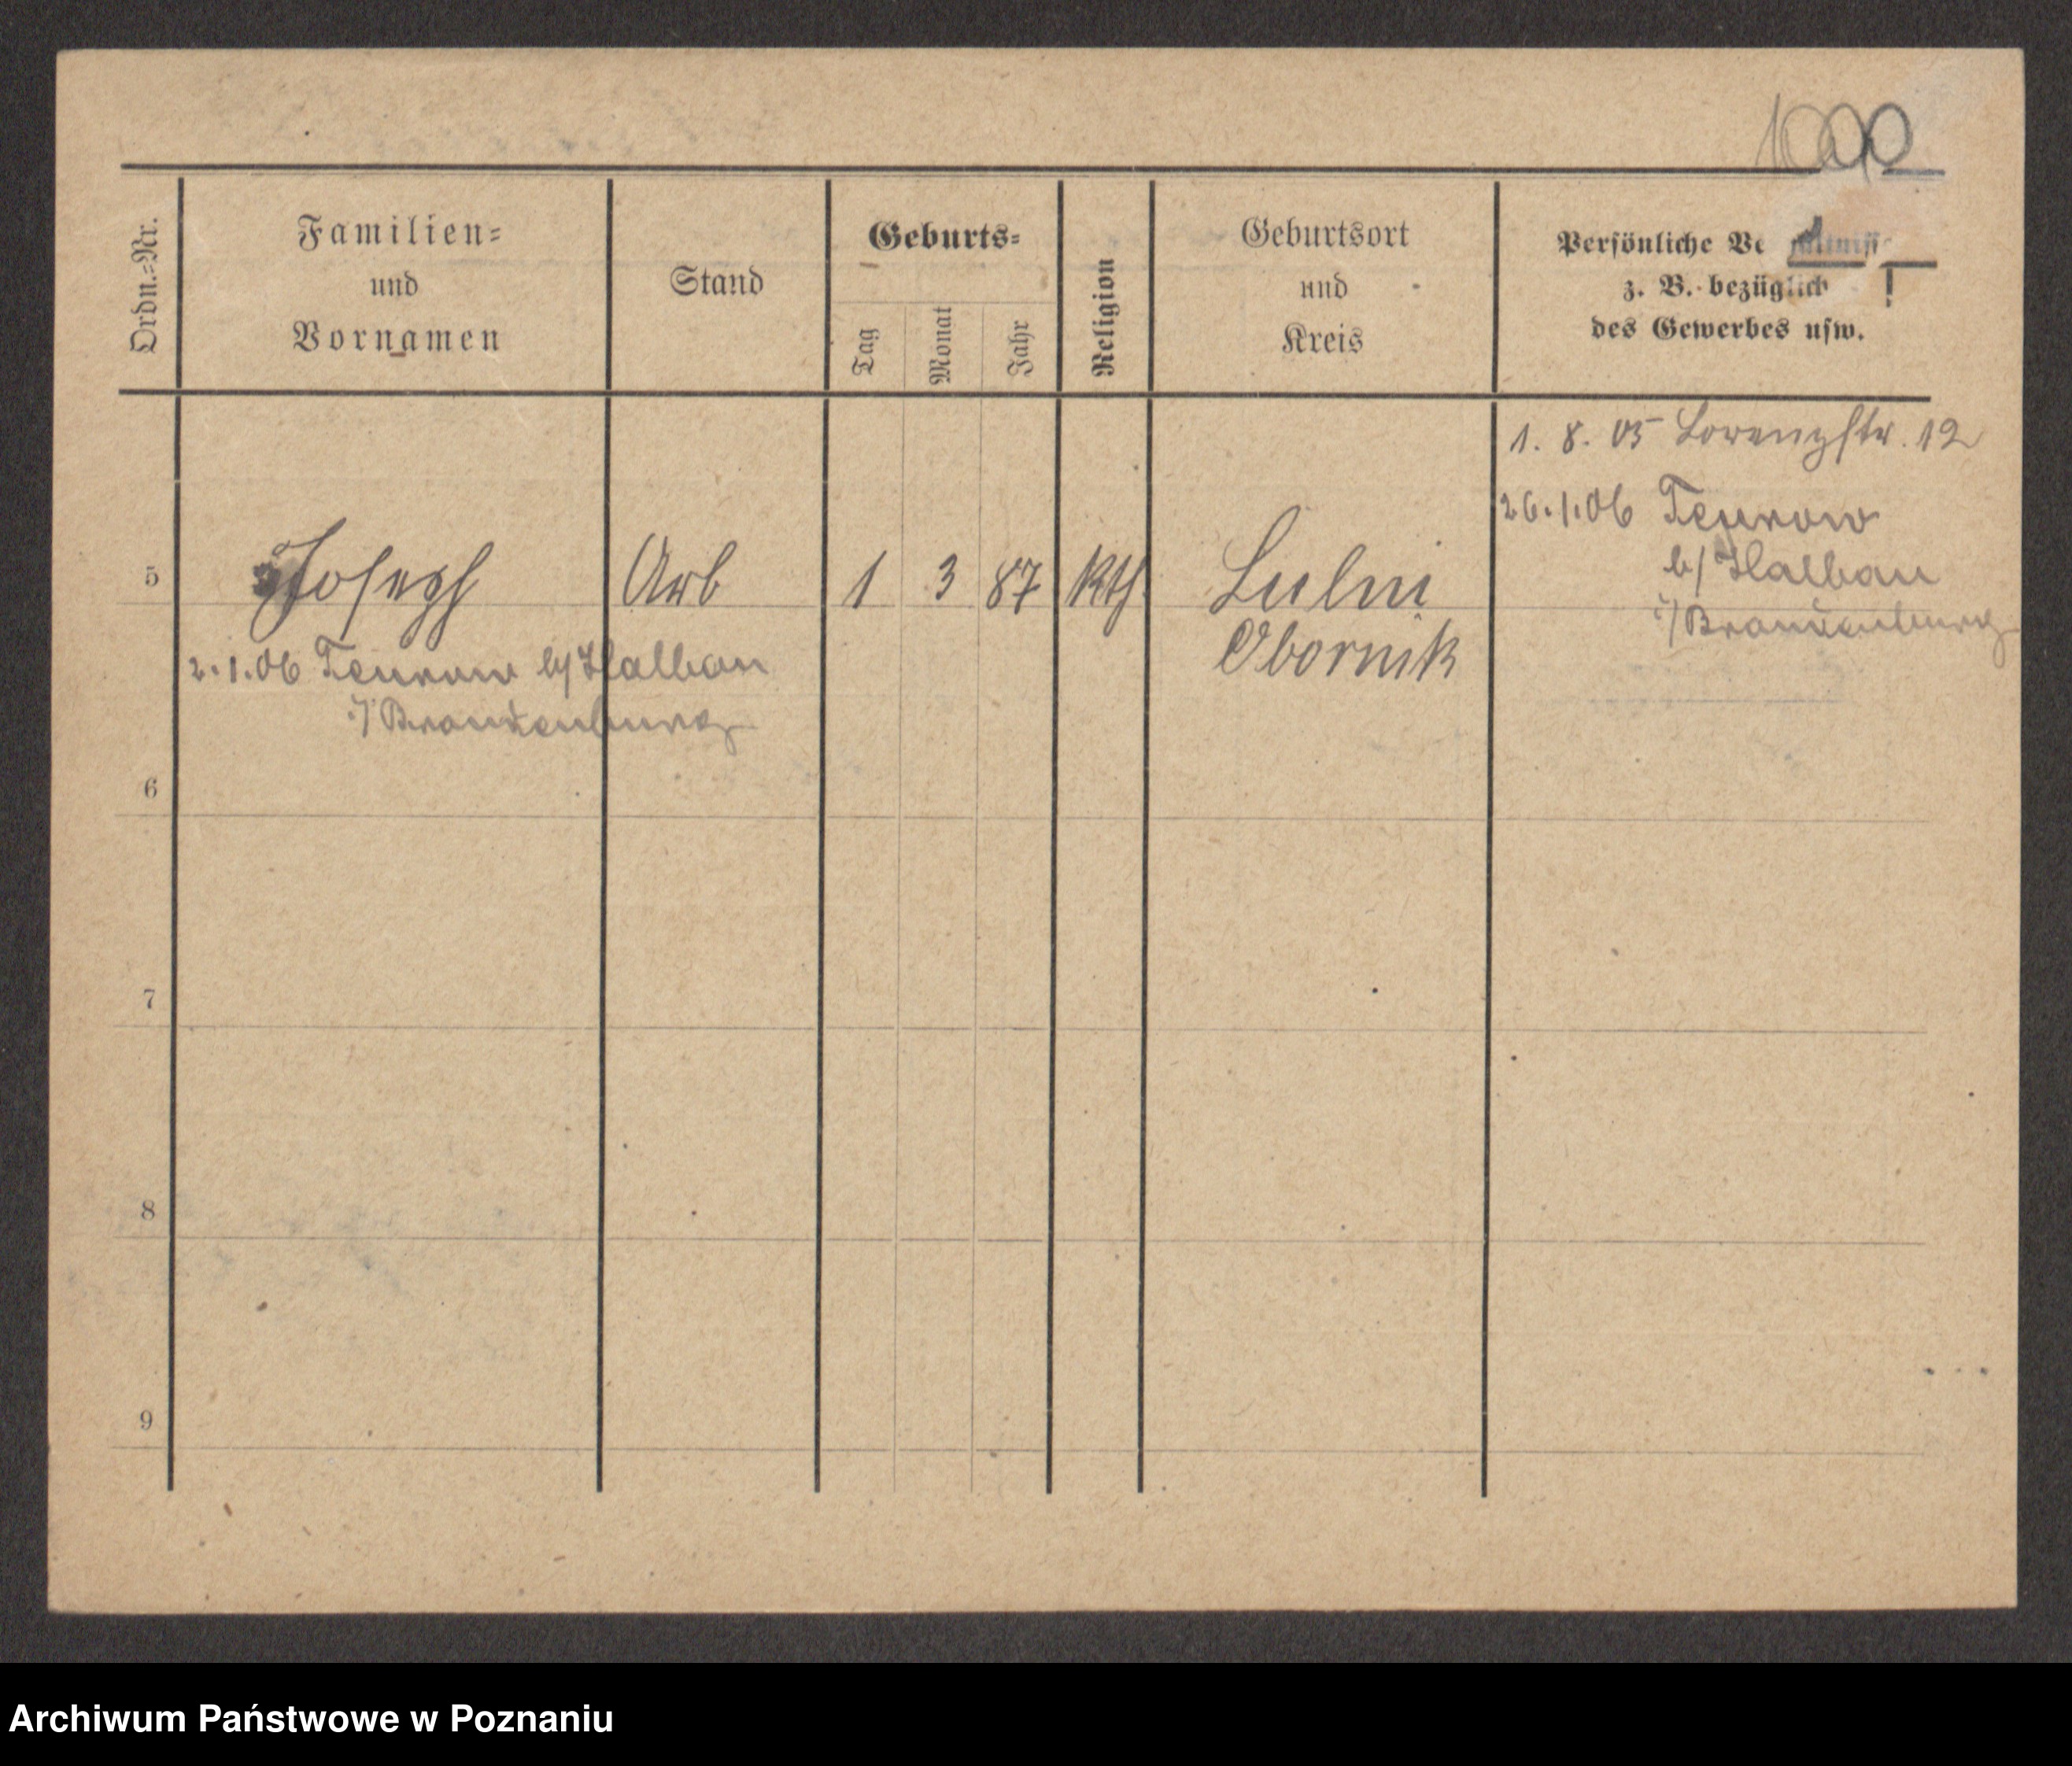 1000
Ordn.=Nr.
Familien=
und
Vornamen
Stand
Geburts=
Tag
Monat
Jahr
Religion
Geburtsort
und
Kreis
Persönliche Ve
z. B. bezüglich
des Gewerbes usw.
1. 8. 05 Lorenzstr. 12
26.1.06
b/ Halbau
i/ Brandenburg
5 Joseph Arb 1 3 87 Kth. Lulin
Obornik
2.1.06 b/ Halbau
i/ Brandenburg
6
7
8
9
Archiwum Państwowe w Poznaniu